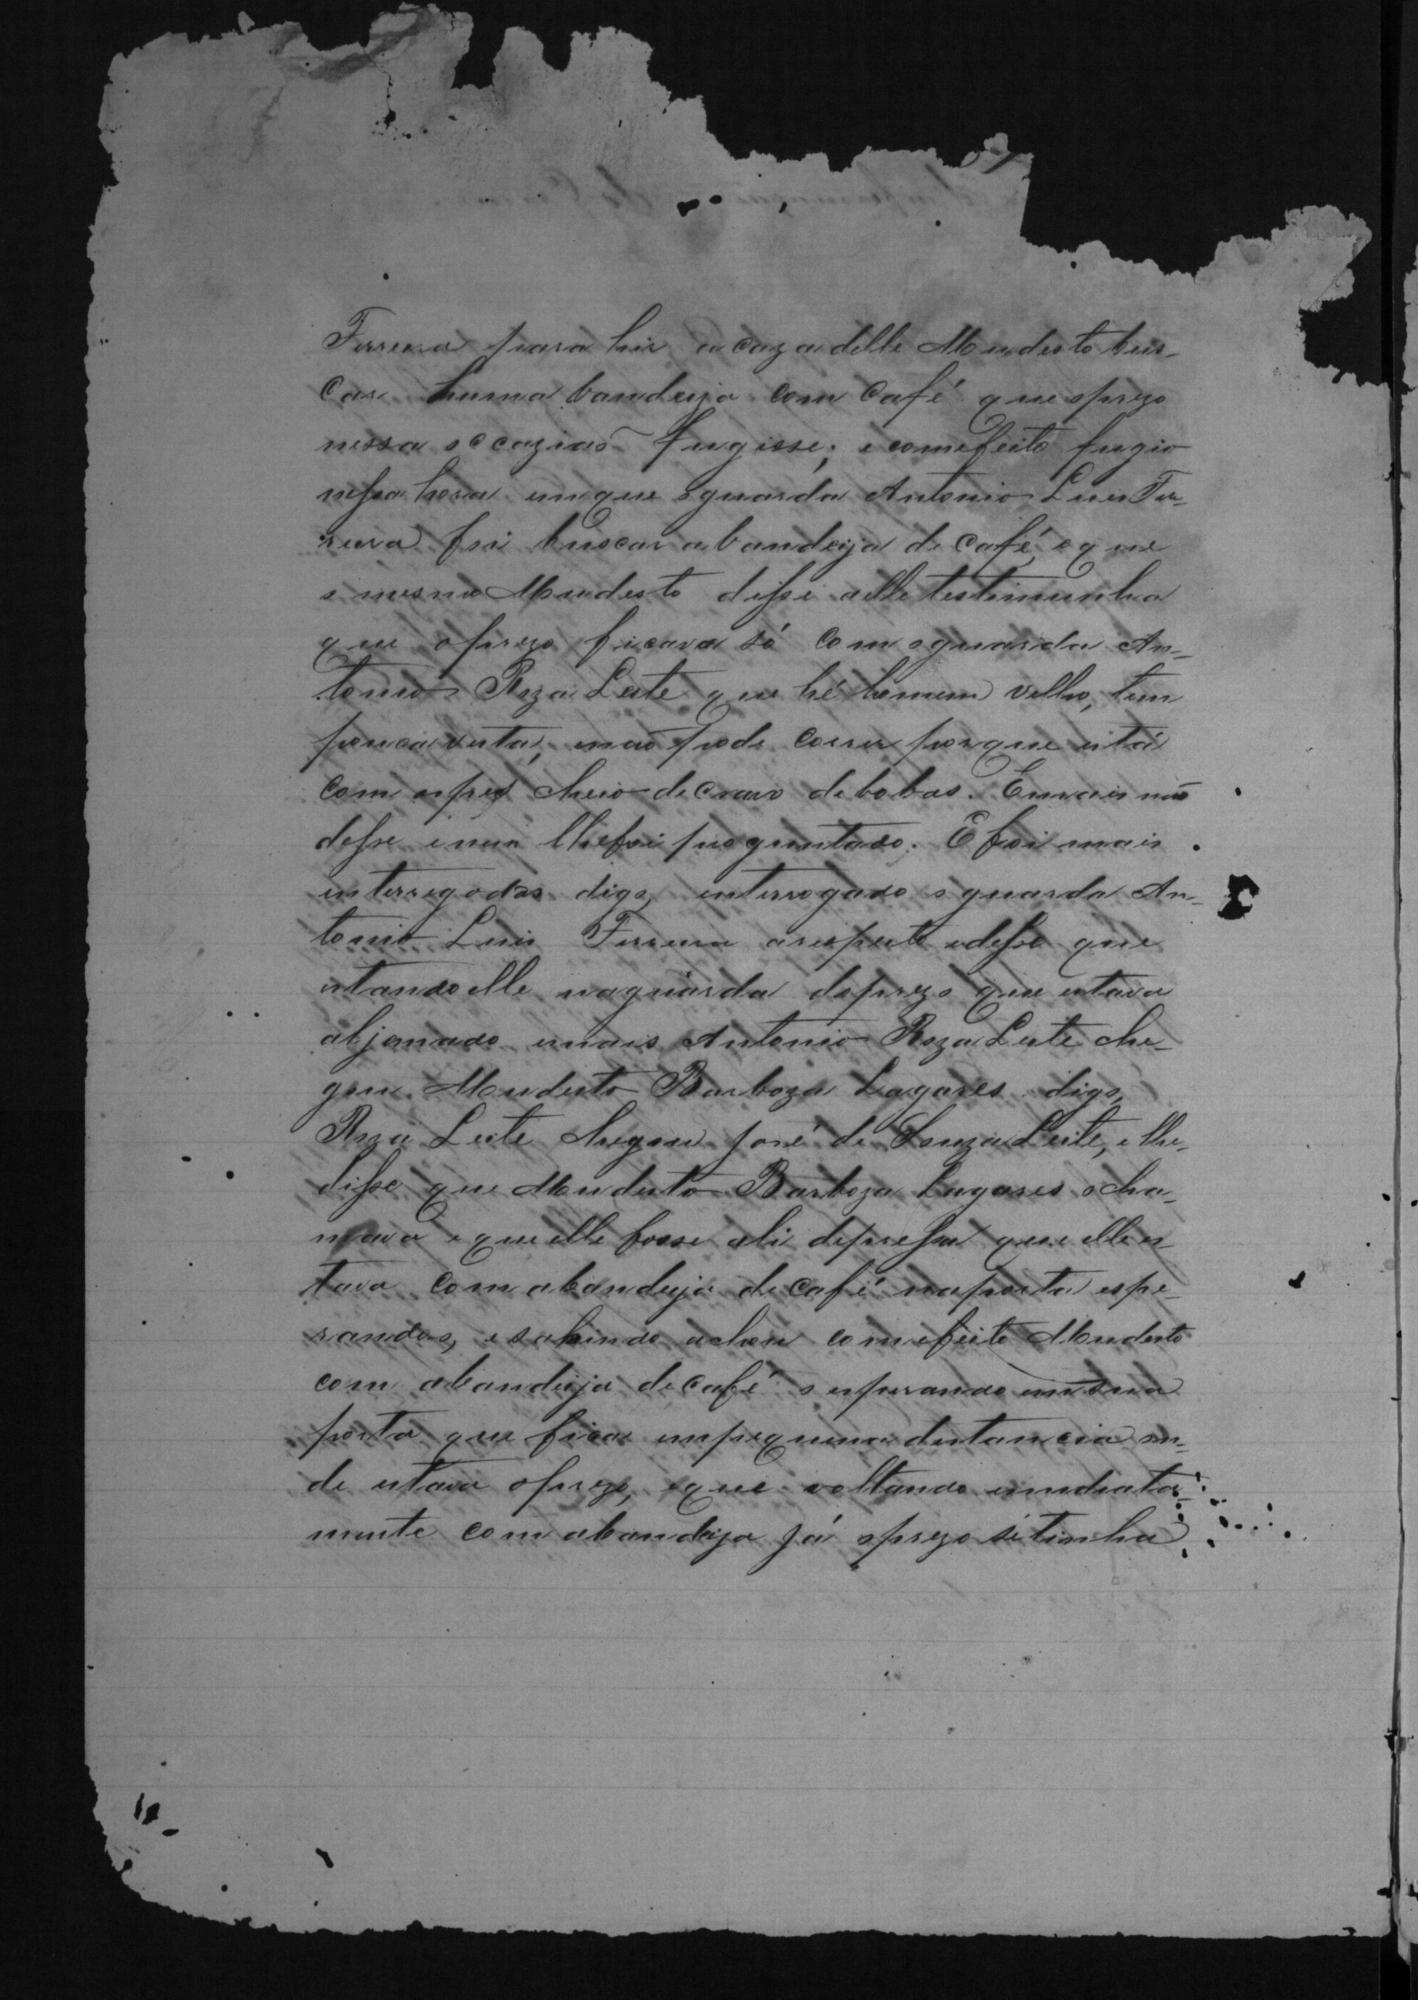 Ferreira para hir a caza delle Mudesto bus-
car huma bandeija com café que o prezo
nessa occazião fugisse; e com efeito fugio
nessa hora em que o guarda Antonio Luis Fer-
reira foi buscar a bandeija de café, e que
o mesmo Mudesto disse a elle testimunha
que o prezo ficava só com o guarda An-
tonio Roza Leite que hé homem velho, tem
pouca vista, e não pode correr porque está
com os pés cheio de cravo de bobas. E mais não
desse e nem lhe foi preguntado. E foi mais
interregodos digo, interrogado o guarda An-
tonio Luis Ferreira a respeito e desse que
estando elle na guarda do prezo que estava
aljemado e mais Antonio Roza Leite che-
gou Mudesto Barboza Lagares digo,
Roza Leite chegou José de Souza Leite, e lhe
disse que Mudesto Barboza Lagares o cha-
mava e que elle fosse ali depressa que elle es-
tava com a bandeija de café na porta espe-
randoo, e sahindo achou com efeito Mudesto
com a bandeija de café o esperando em sua
porta que fica em pequena distancia on-
de estava o prezo, e que voltando immediata-
mente com a bandeija já o prezo sé tinha